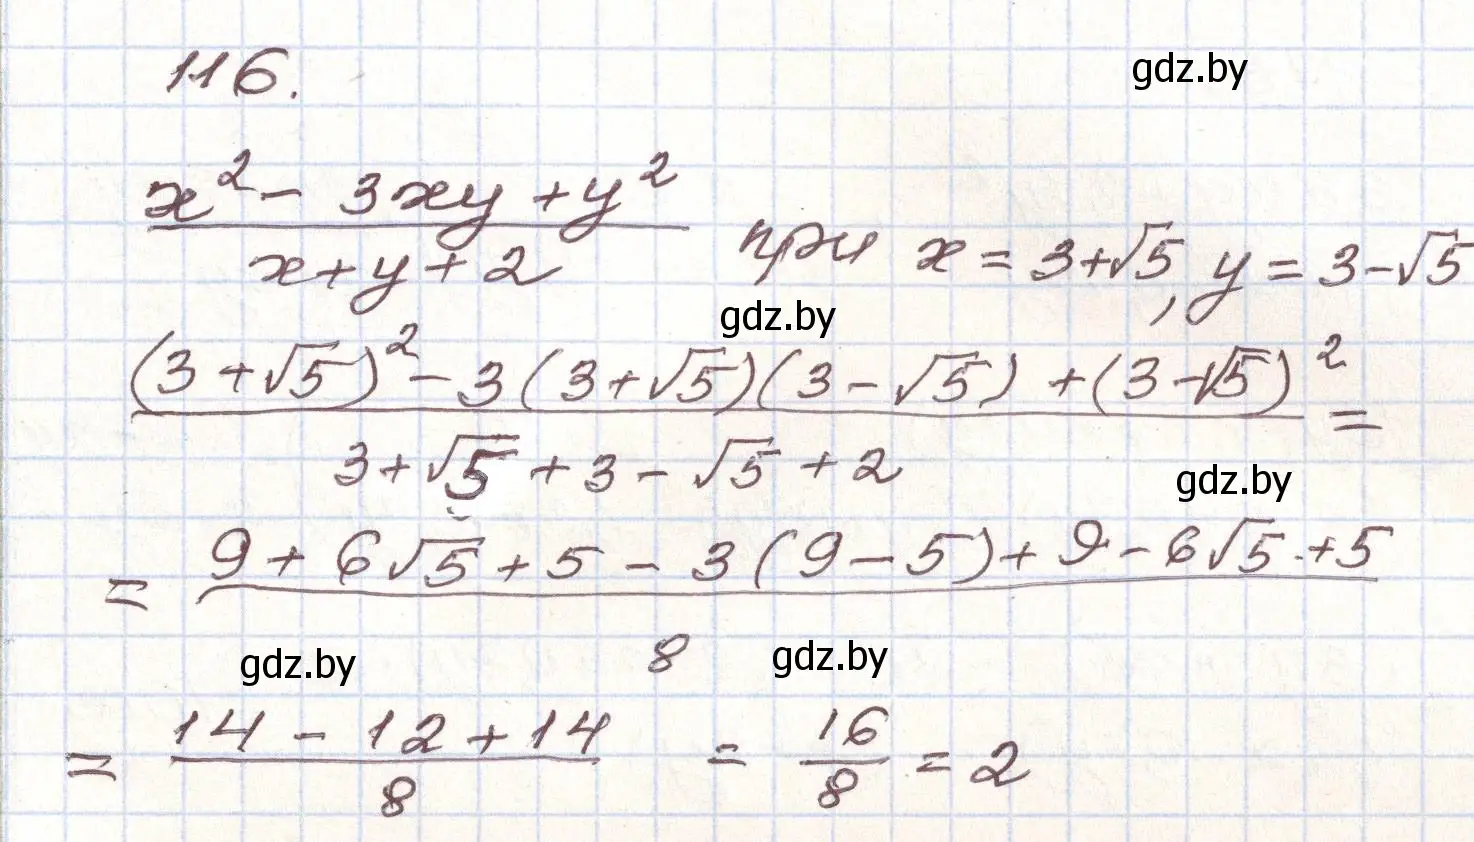 116.
gdz.by
x² - 3xy + y²
x + y + 2
при x = 3+√5, y = 3-√5
gdz.by
(3+√5)² - 3(3+√5)(3-√5) + (3-√5)² =
3+√5 + 3 - √5 + 2
gdz.by
= 9 + 6√5 + 5 - 3(9-5) + 9 - 6√5 + 5
8
gdz.by
gdz.by
= 14 - 12 + 14 = 16 = 2
8 8